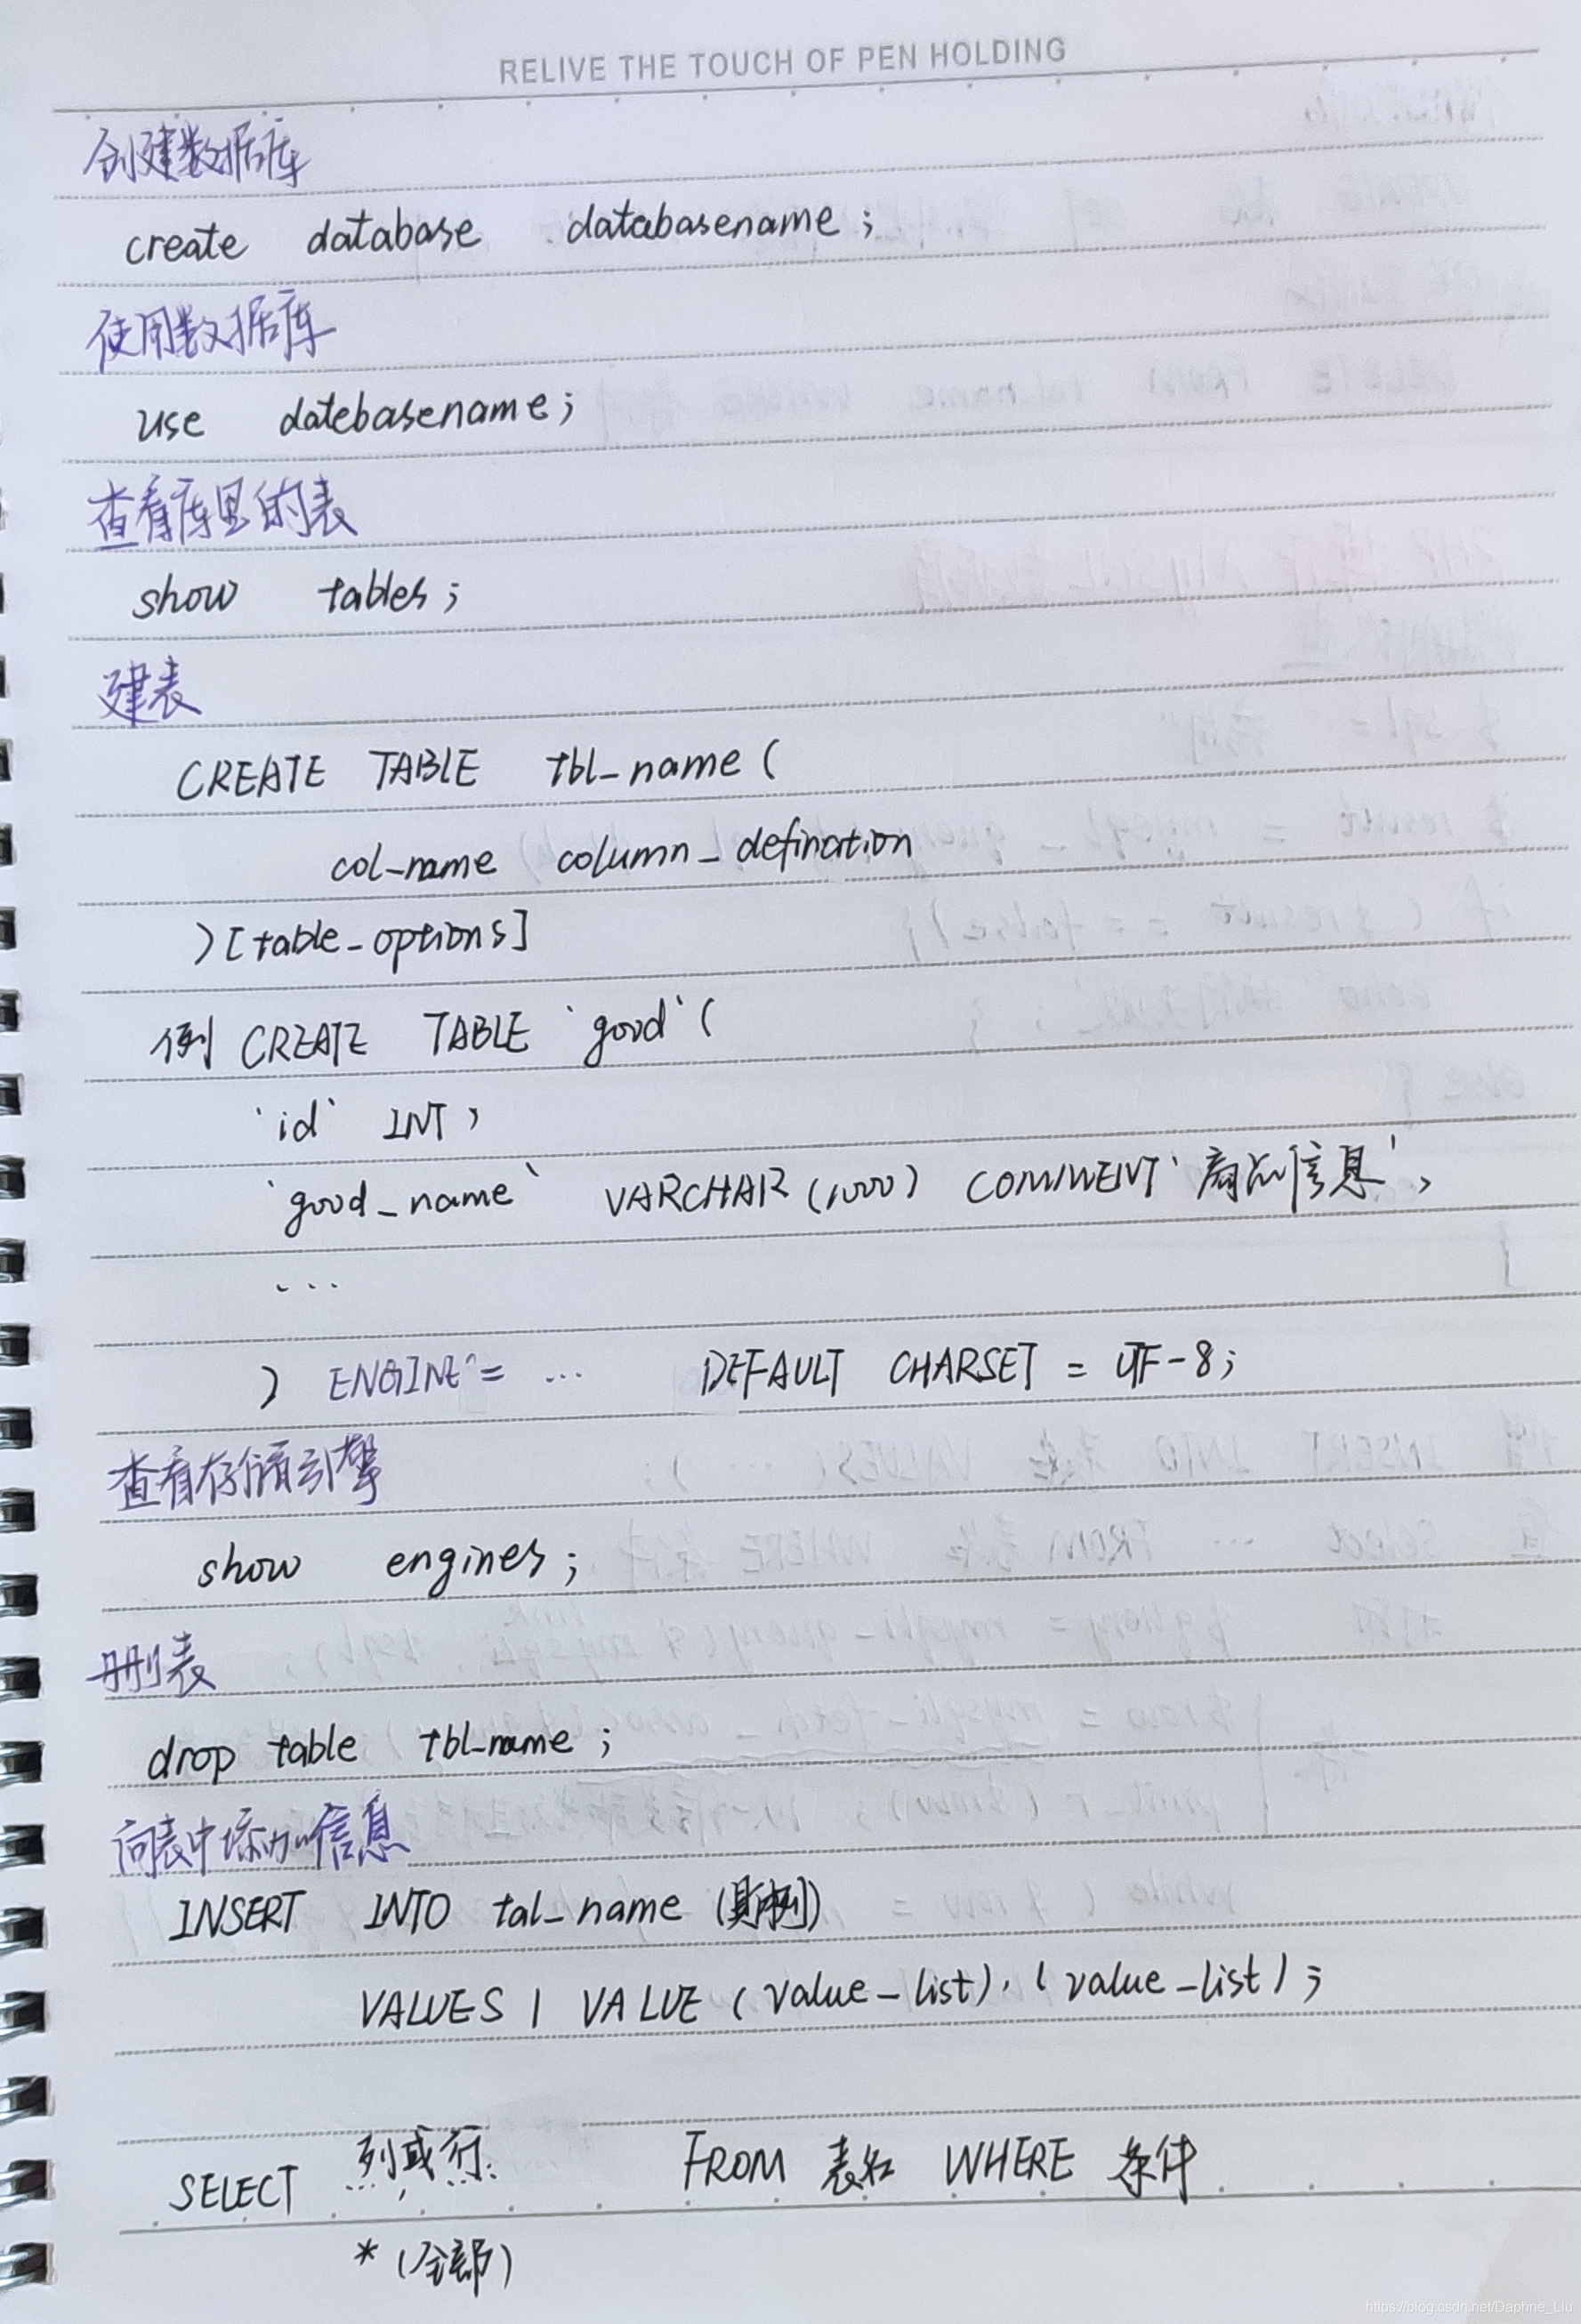 RELIVE THE TOUCH OF PEN HOLDING
创建数据库
create database databasename ;
使用数据库
use datebasename ;
查看库里的表
show tables ;
建表
CREATE TABLE tbl_name (
col_name column_defination
) [table_options]
例 CREATE TABLE `good` (
`id` INT ,
`good_name` VARCHAR (1000) COMMENT '商品信息' ,
...
) ENGINE = ... DEFAULT CHARSET = UTF-8 ;
查看存储引擎
show engines ;
删表
drop table tbl_name ;
向表中添加信息
INSERT INTO tal_name
VALUES | VALUE ( value_list ) , ( value_list ) ;
SELECT 列或行 FROM 表名 WHERE 条件
* (全部)
https://blog.csdn.net/Daphne_Liu